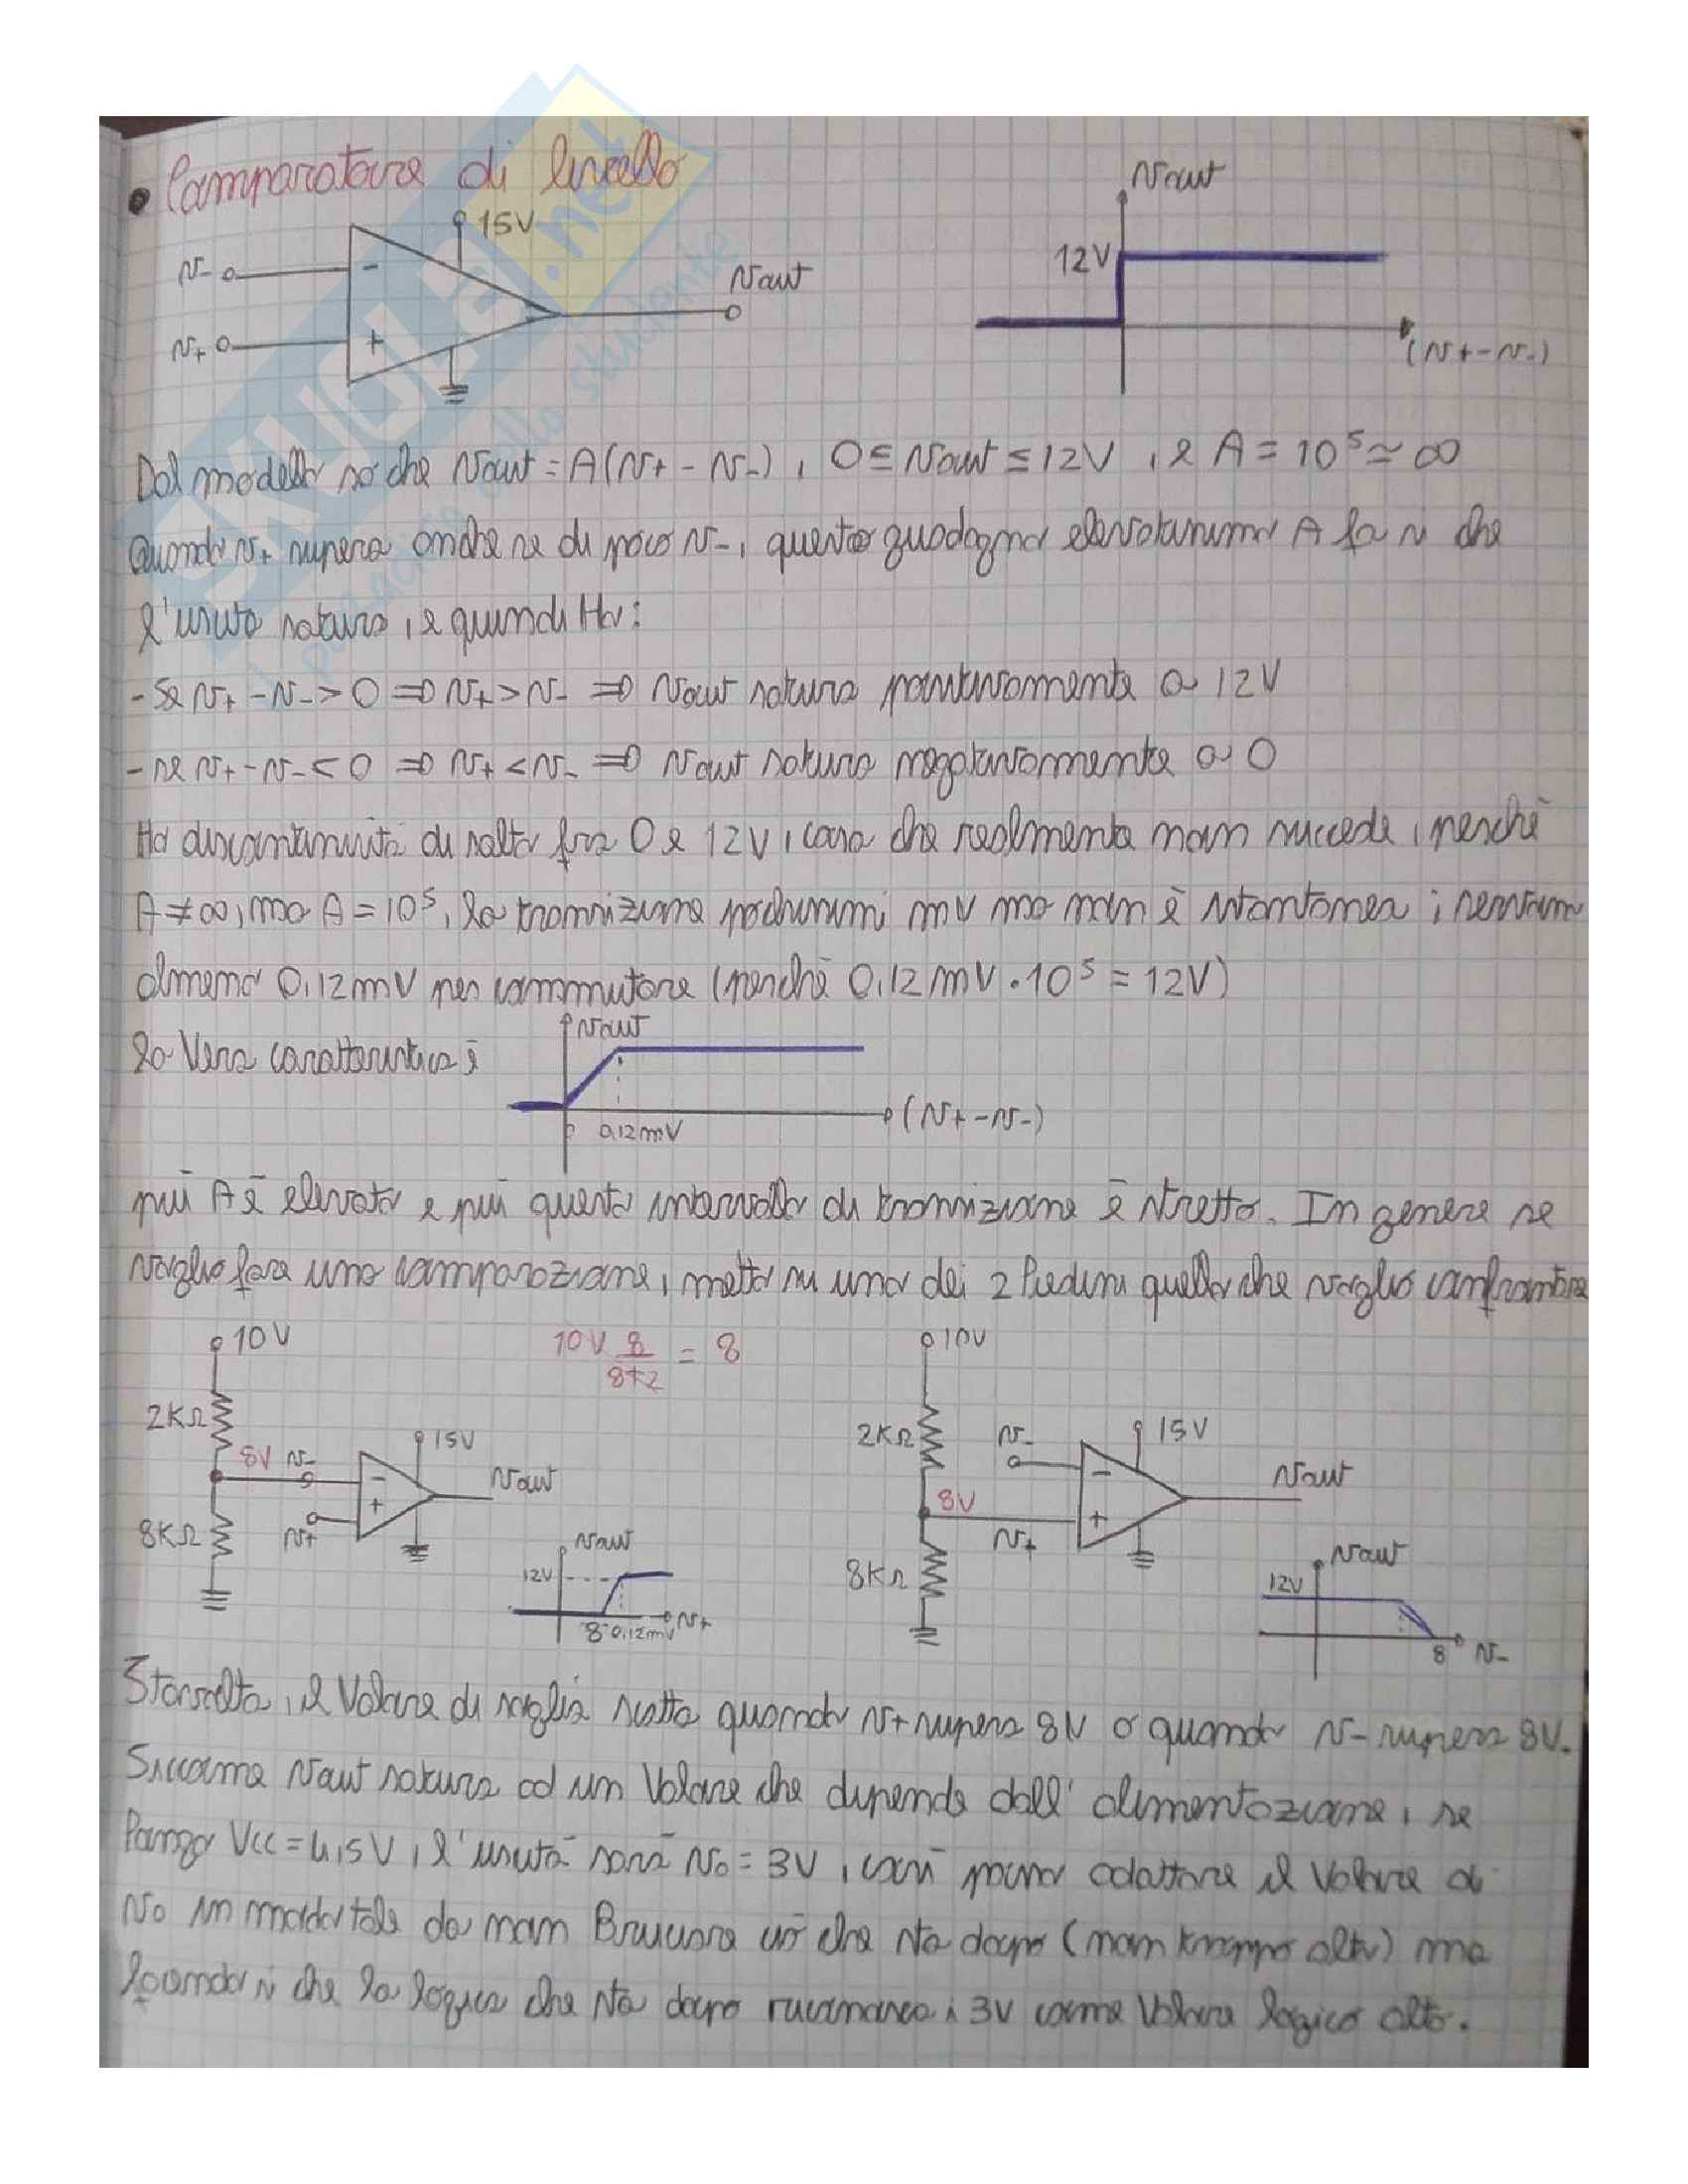 • Comparatore di livello
15V
v-
v+
Vout
-
+
Vout
12V
(v+-v-)
Dal modello so che Vout = A(v+ - v-), 0 ≤ Vout ≤ 12V, e A = 10⁵ ≃ ∞
Quando v+ supera anche se di poco v-, questo guadagno elevatissimo A fa si che
l'uscita satura, e quindi Ho:
- Se v+ - v- > 0 ⇒ v+ > v- ⇒ Vout satura positivamente a 12V
- se v+ - v- < 0 ⇒ v+ < v- ⇒ Vout satura negativamente a 0
Ho discontinuità di salto fra 0 e 12V, cosa che realmente non succede, perché
A ≠ ∞, ma A = 10⁵, la transizione pochissimi mV ma non è istantanea; servono
almeno 0,12mV per commutare (perché 0,12mV · 10⁵ = 12V)
la Vera caratteristica è
Vout
0
0,12mV
(v+-v-)
più A è elevato e più questo intervallo di transizione è stretto. In genere se
voglio fare una comparazione, metto su uno dei 2 Piedini quello che voglio confrontare
10V
10V 8/(8+2) = 8
10V
2KΩ
8V
v-
-
+
15V
Vout
8KΩ
v+
Vout
12V
8
0,12mV
v+
2KΩ
v-
-
+
15V
Vout
8V
v+
8KΩ
Vout
12V
8
v-
Stavolta, il Valore di soglia scatta quando v+ supera 8V o quando v- supera 8V.
Siccome Vout satura ad un Valore che dipende dall'alimentazione, se
Pongo Vcc = 4,5V, l'uscita sarà Vo = 3V, così posso adattare il Valore di
Vo in modo tale da non Bruciare ciò che sta dopo (non troppo alto) ma
facendo si che la logica che sta dopo riconosca i 3V come Valore logico alto.
SKUOLa.net